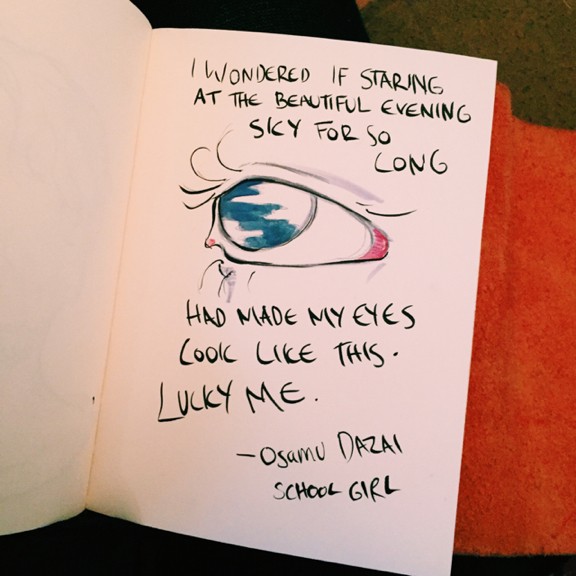 I WONDERED IF STARING
AT THE BEAUTIFUL EVENING
SKY FOR SO
LONG
HAD MADE MY EYES
LOOK LIKE THIS.
LUCKY ME.
—OSAMU DAZAI
SCHOOL GIRL